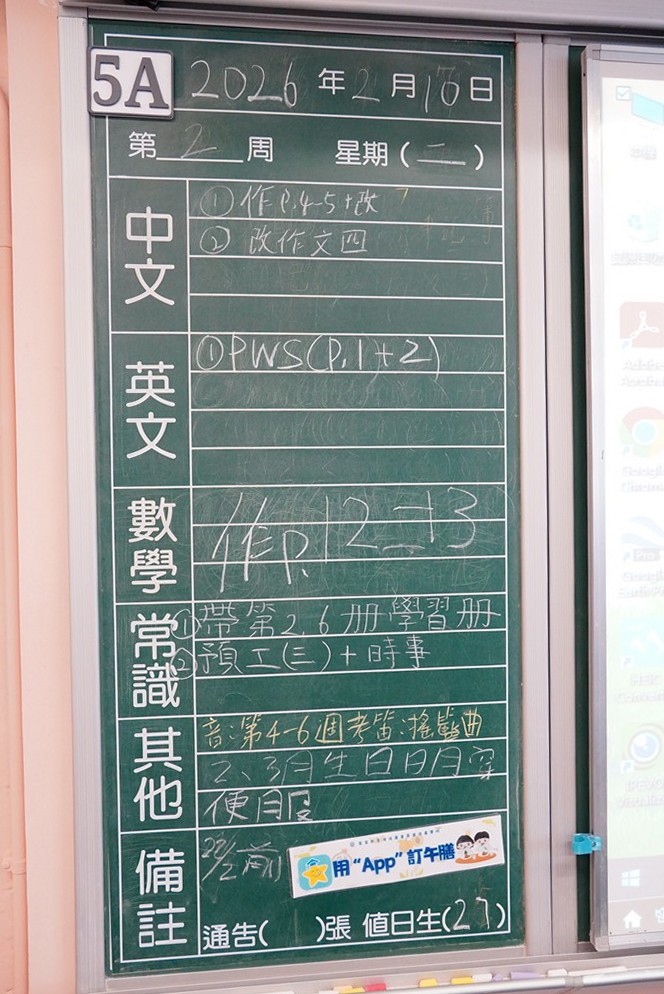 5A 2026年2月10日
第2周 星期(二)
中文
①作P.4-5+改
②改作文四
英文
①PWS(P.1+2)
數學
作P.12-13
常識
①帶第2,6冊學習冊
②預工(三)+時事
其他
音:第4-6週考笛:搖籃曲
2、3月生日日月穿
便服
備註
23/2前
用"App"訂午膳
通告( )張 值日生(27)